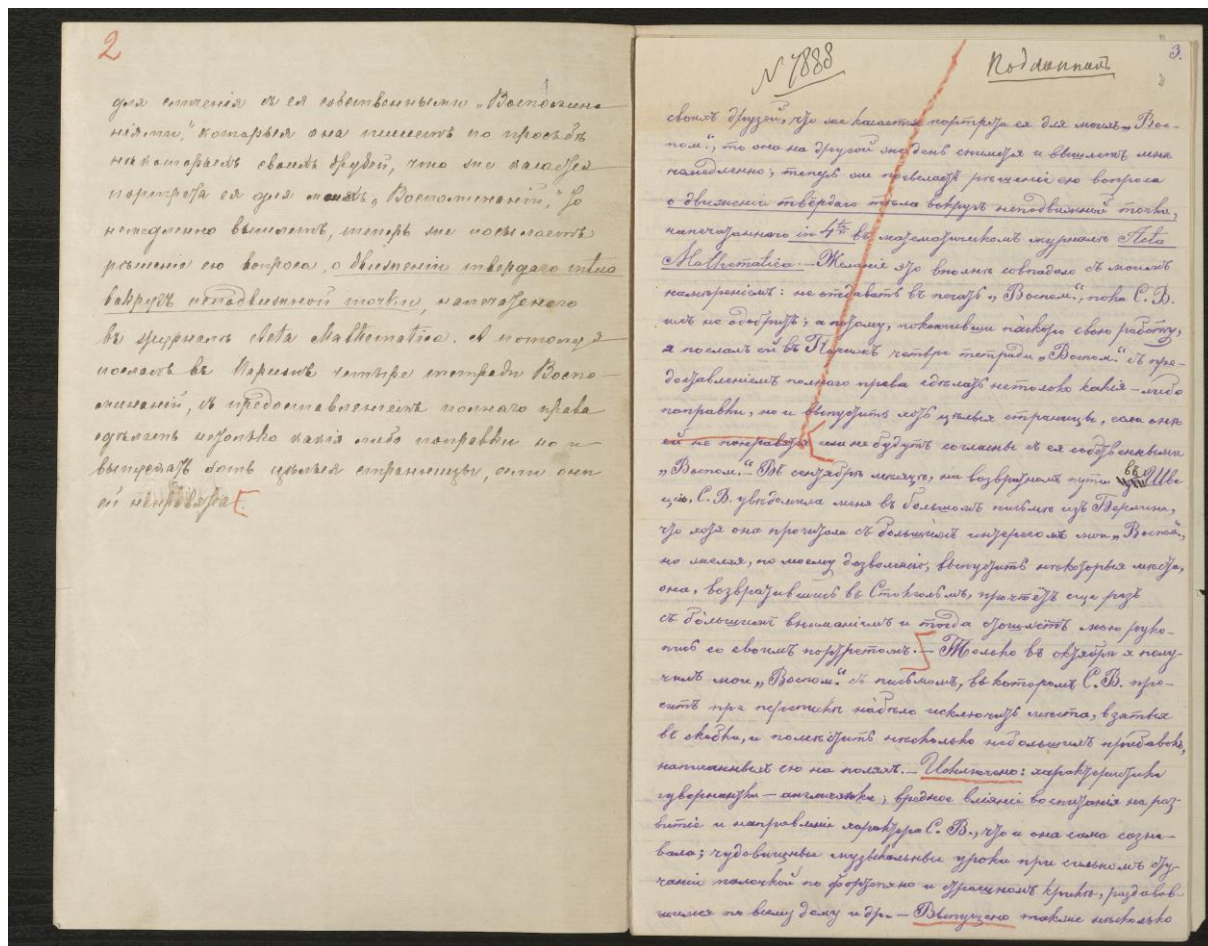 2
для сличенія съ ея собственными „Воспомина-
ніями," которыя она пишетъ по просьбѣ
нѣкоторыхъ своихъ друзей, что же касается
портрета ея для моихъ „Воспоминаній," то
немедленно вышлетъ, теперь же посылаетъ
рѣшеніе ею вопроса, о движеніи твердаго тѣла
вокругъ неподвижной точки, напечатаннаго
въ журналѣ Acta Mathematica. А потому я
послалъ въ Парижъ четыре тетради Воспо-
минаній, съ предоставленіемъ полнаго права
сдѣлать нетолько какія либо поправки но и
выпускать хоть цѣлыя страницы, если онѣ
ей непонравятся
3.
N 1888
Подлинникъ
своихъ друзей, что же касается портрета ея для моихъ „Вос-
пом.", то она на другой же день снимется и вышлетъ мнѣ
немедленно; теперь же посылаетъ рѣшеніе ею вопроса
о движеніи твёрдаго тѣла вокругъ неподвижной точки,
напечатаннаго in 4to въ математическомъ журналѣ Acta
Mathematica. — Желаніе это вполнѣ совпадало съ моимъ
намѣреніемъ: не отдавать въ печать „Воспом.", пока С. В.
ихъ не одобритъ; а потому, покончивши наскоро свою работу,
я послалъ ей въ Парижъ четыре тетради „Воспом." съ пре-
доставленіемъ полнаго права сдѣлать нетолько какія-либо
поправки, но и выпустить хоть цѣлыя страницы, если онѣ
ей не понравятся или не будутъ согласны съ ея собственными
„Воспом." — Въ сентябрѣ мѣсяцѣ, на возвратномъ пути въ Шве-
цію, С. В. увѣдомила меня въ большомъ письмѣ изъ Берлина,
что хотя она прочитала съ большимъ интересомъ мои „Воспом.",
но желая, по моему дозволенію, выпустить нѣкоторыя мѣста,
она, возвратившись въ Стокгольмъ, прочтетъ еще разъ
съ бо́льшимъ вниманіемъ и тогда отошлетъ мою руко-
пись со своимъ портретомъ. — Только въ октябрѣ я полу-
чилъ мои „Воспом." съ письмомъ, въ которомъ С. В. про-
ситъ при перепискѣ на́бѣло исключить мѣста, взятыя
въ скобки, и помѣстить нѣсколько небольшихъ прибавокъ,
написанныхъ ею на поляхъ. — Исключено: характеристика
гувернантки — англичанки; вредное вліяніе воспитанія на раз-
витіе и направленіе характера С. В., что и она сама созна-
вала; чудовищные музыкальные уроки при сильномъ сту-
чаніи палочкой по фортепіано и страшномъ крикѣ, раздавав-
шимся по всему дому и др. — Выпущено также нѣсколько